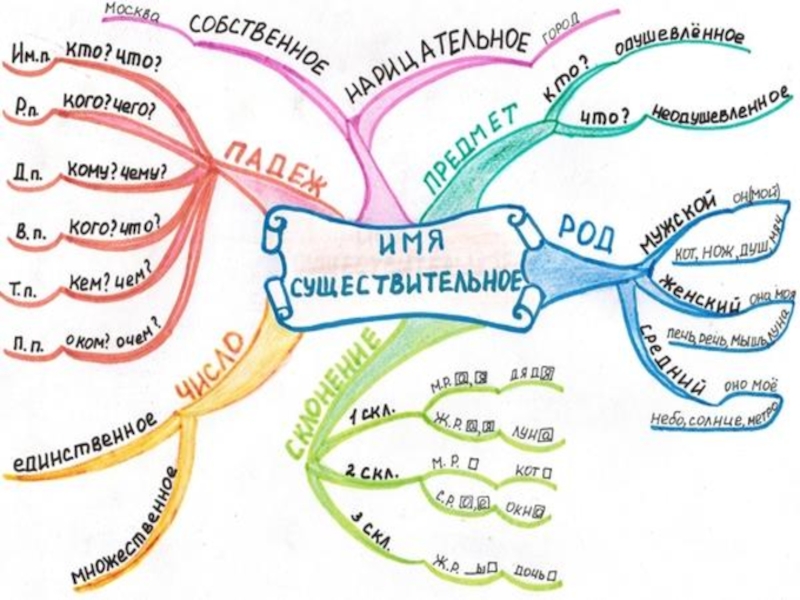 ИМЯ
СУЩЕСТВИТЕЛЬНОЕ
Москва
СОБСТВЕННОЕ
НАРИЦАТЕЛЬНОЕ
ГОРОД
ПРЕДМЕТ
КТО?
одушевлённое
что?
неодушевленное
РОД
МУЖСКОЙ
он(мой)
КОТ, НОЖ, ДУШ, МЯЧ
ЖЕНСКИЙ
она моя
печь, речь, мышь, луна
СРЕДНИЙ
оно моё
небо, солнце, метро
СКЛОНЕНИЕ
1 скл.
М.Р. а, я
ДЯДЯ
Ж.Р. а, я
ЛУНа
2 скл.
М.Р. □
КОТ □
С.Р. о, е
ОКНо
3 скл.
Ж.Р. _ь□
ДОЧЬ□
ЧИСЛО
единственное
множественное
ПАДЕЖ
Им.п. кто? что?
Р.п. кого? чего?
Д.п. кому? чему?
В.п. кого? что?
Т.п. кем? чем?
П.п. о ком? о чем?